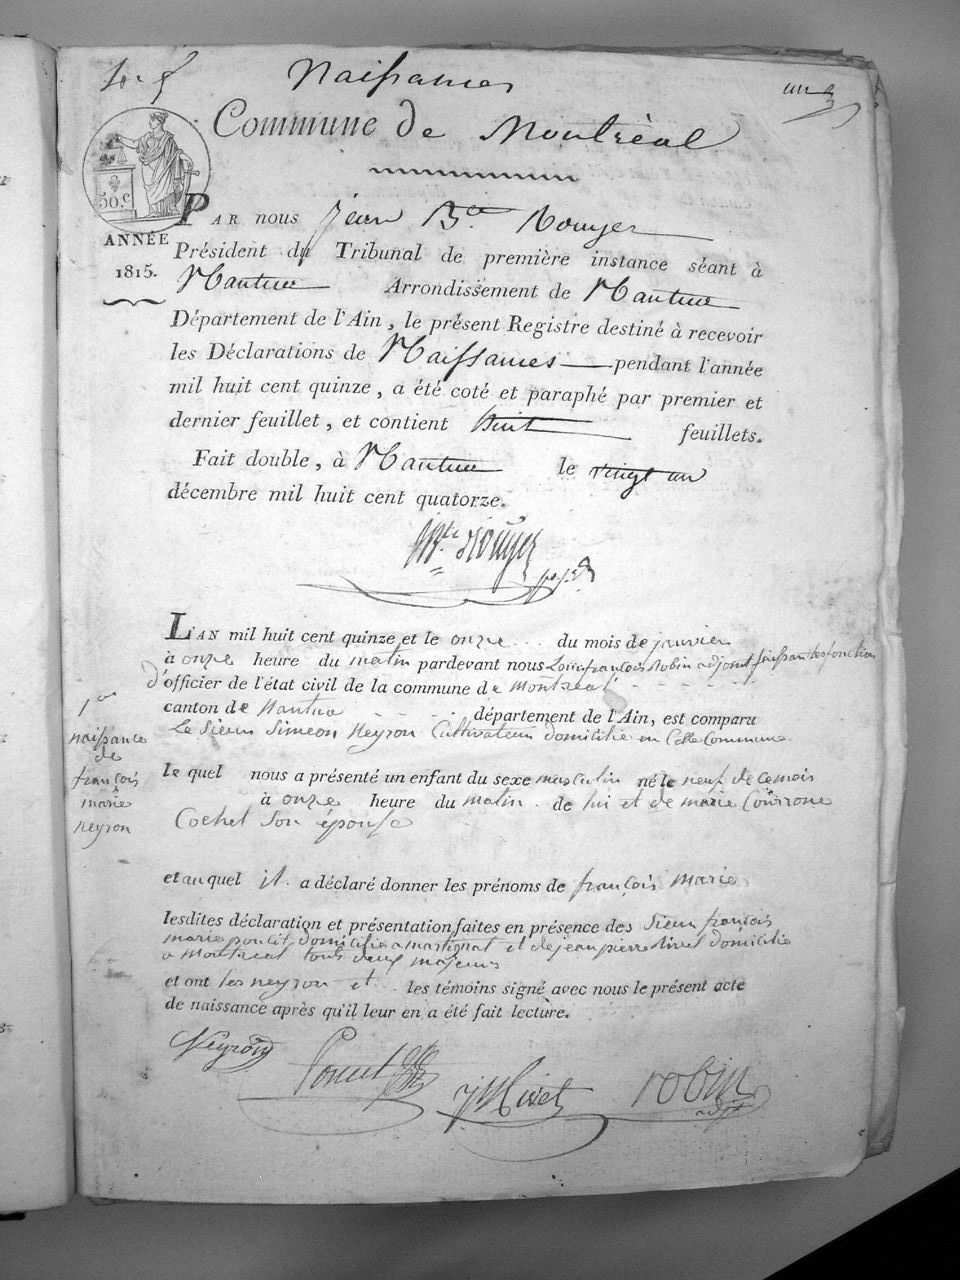 Naissances
Commune de Montréal
50.c
ANNÉE
1815.
PAR nous Jean Bte Rouyer
Président du Tribunal de première instance séant à
Nantua Arrondissement de Nantua
Département de l'Ain, le présent Registre destiné à recevoir
les Déclarations de Naissances pendant l'année
mil huit cent quinze, a été coté et paraphé par premier et
dernier feuillet, et contient huit feuillets.
Fait double, à Nantua le vingt un
décembre mil huit cent quatorze.
Bte Rouyer
L'AN mil huit cent quinze et le onze du mois de janvier
à onze heure du matin pardevant nous Louis françois Robin adjoint faisant les fonction
d'officier de l'état civil de la commune de Montréal
canton de Nantua département de l'Ain, est comparu
Le Sieur Simeon Neyron Cultivateur domicilié en Cette Commune
le quel nous a présenté un enfant du sexe masculin né le neuf de ce mois
à onze heure du matin de lui et de marie
Cochet Son épouse
1er
naissance
de
françois
marie
neyron
et au quel il a déclaré donner les prénoms de françois marie
lesdites déclaration et présentation faites en présence des Sieur françois
marie poncet domicilié a martignat et de jean pierre livet domicilié
a Montréal touts deux majeurs
et ont les neyron et les témoins signé avec nous le présent acte
de naissance après qu'il leur en a été fait lecture.
Neyron
Poncet
Livet
robin
adjt